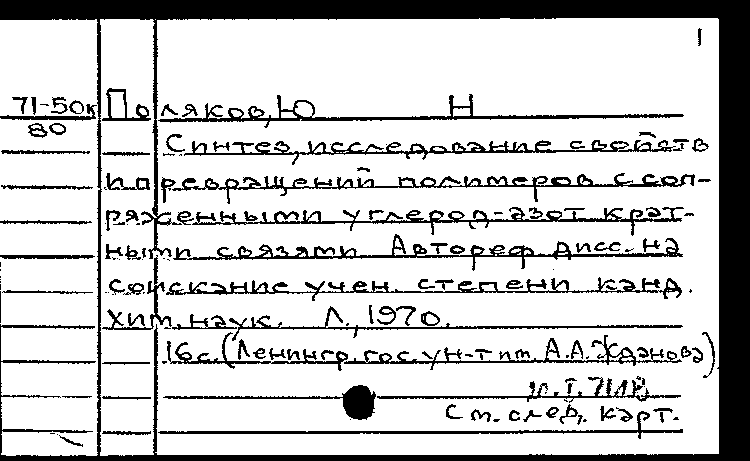 1
71-50к Поляков, Ю Н
80
Синтез, исследование свойств
и превращений полимеров с соп-
ряженными углерод-азот крат-
ными связями. Автореф. дисс. на
соискание учен. степени канд.
хим. наук. Л., 1970.
16 с. (Ленингр. гос. ун-т им. А.А. Жданова)
См. след. карт.